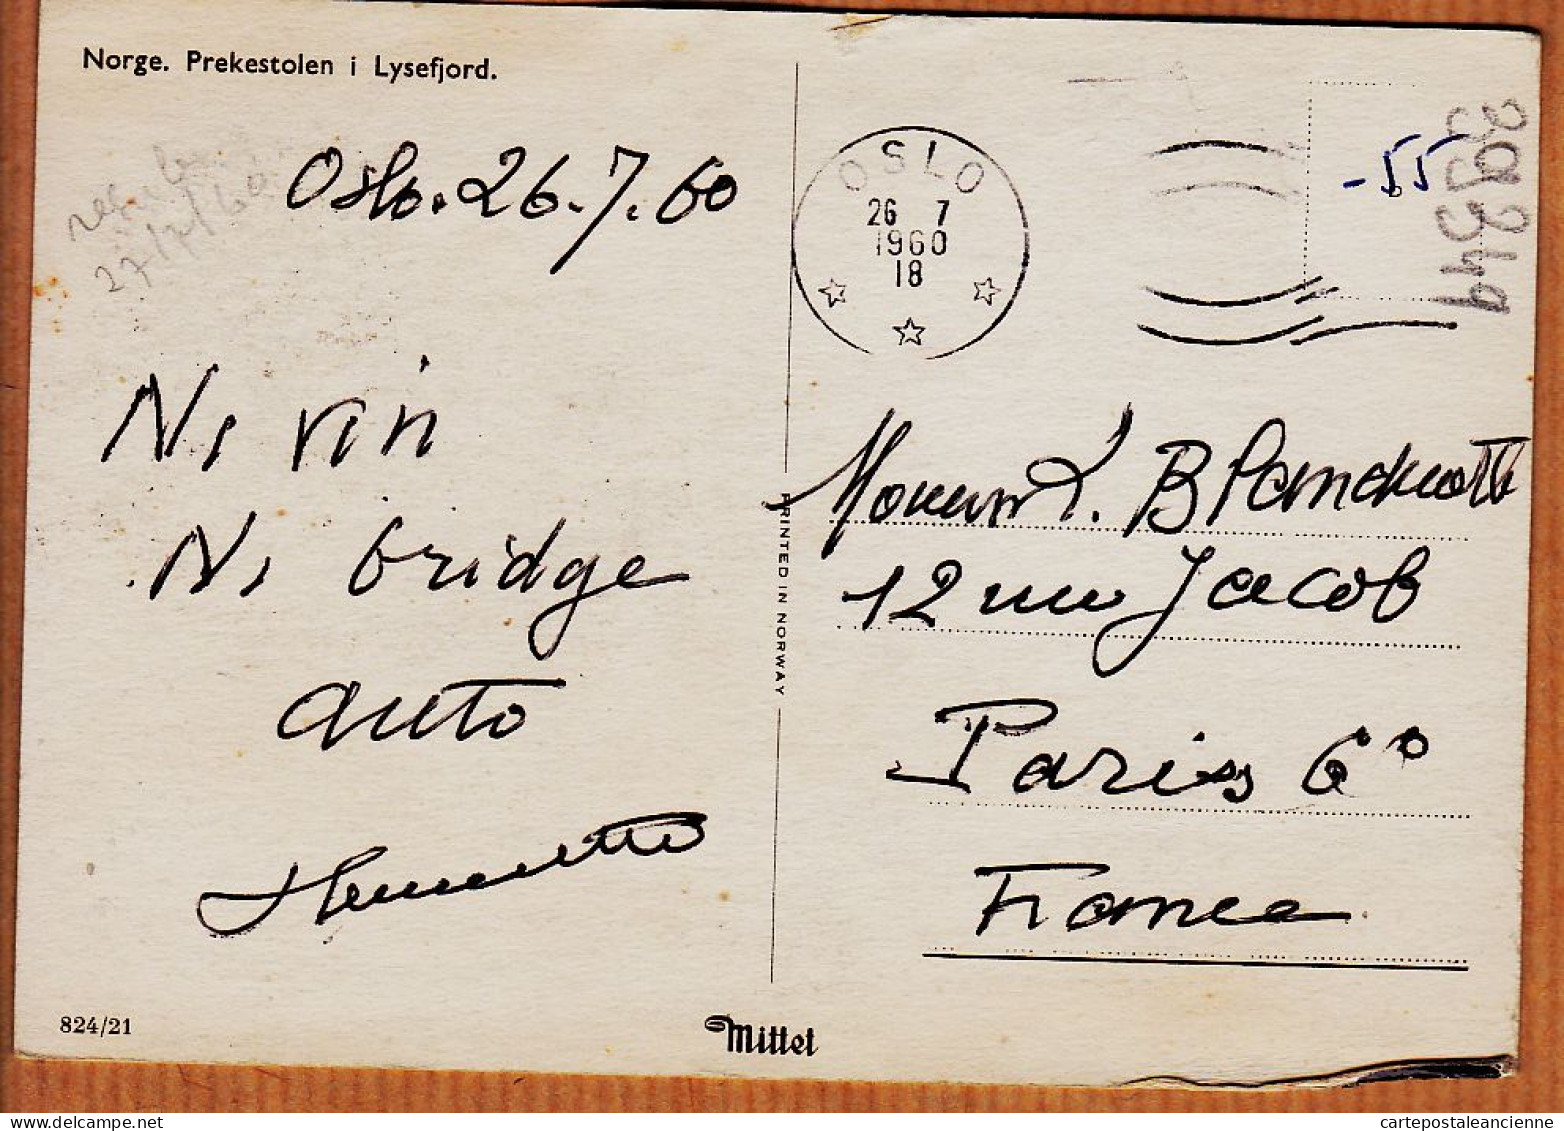 Norge. Prekestolen i Lysefjord.
Oslo. 26.7.60
27/7/60
Ni vin
Ni bridge
auto
824/21
Mittet
PRINTED IN NORWAY
OSLO
26 7
1960
18
-55
39 249
Monsieur
12 rue Jacob
Paris 6°
France
cartepostaleancienne